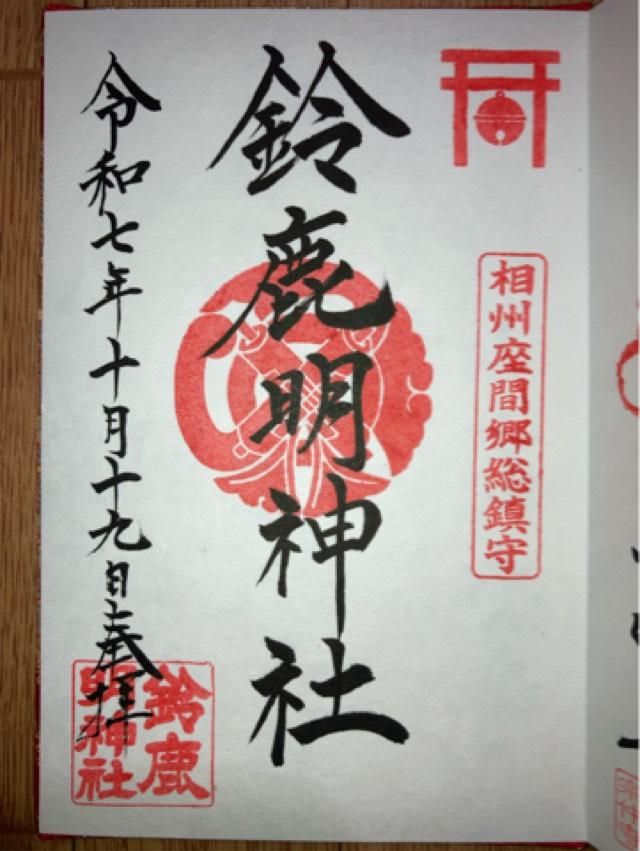 相州座間郷総鎮守
鈴鹿明神社
令和七年十月十九日奉拝
鈴鹿
明神社